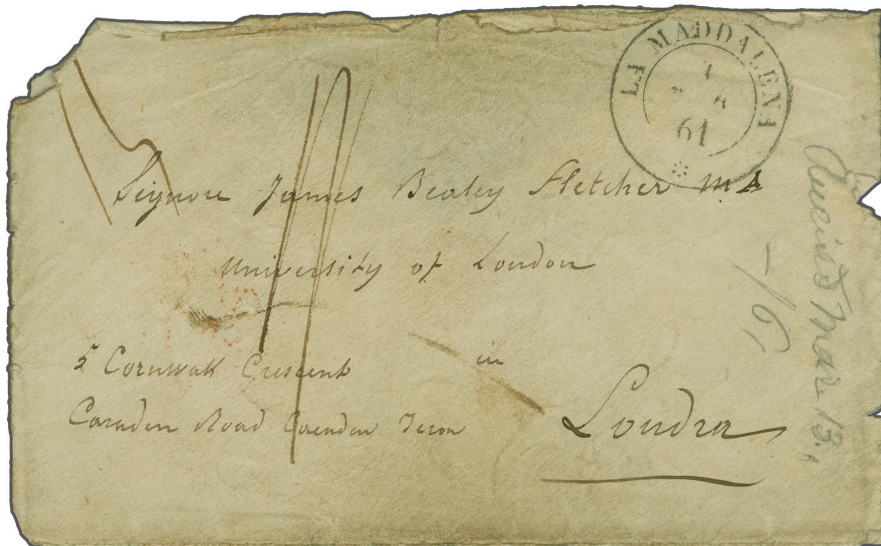 LA MADDALENA
61
Seignore James Bealey Fletcher MA
University of London
5 Cornwall Crescent
in
Camden Road Camden Town
Londra
Received Mar 13,
-/61